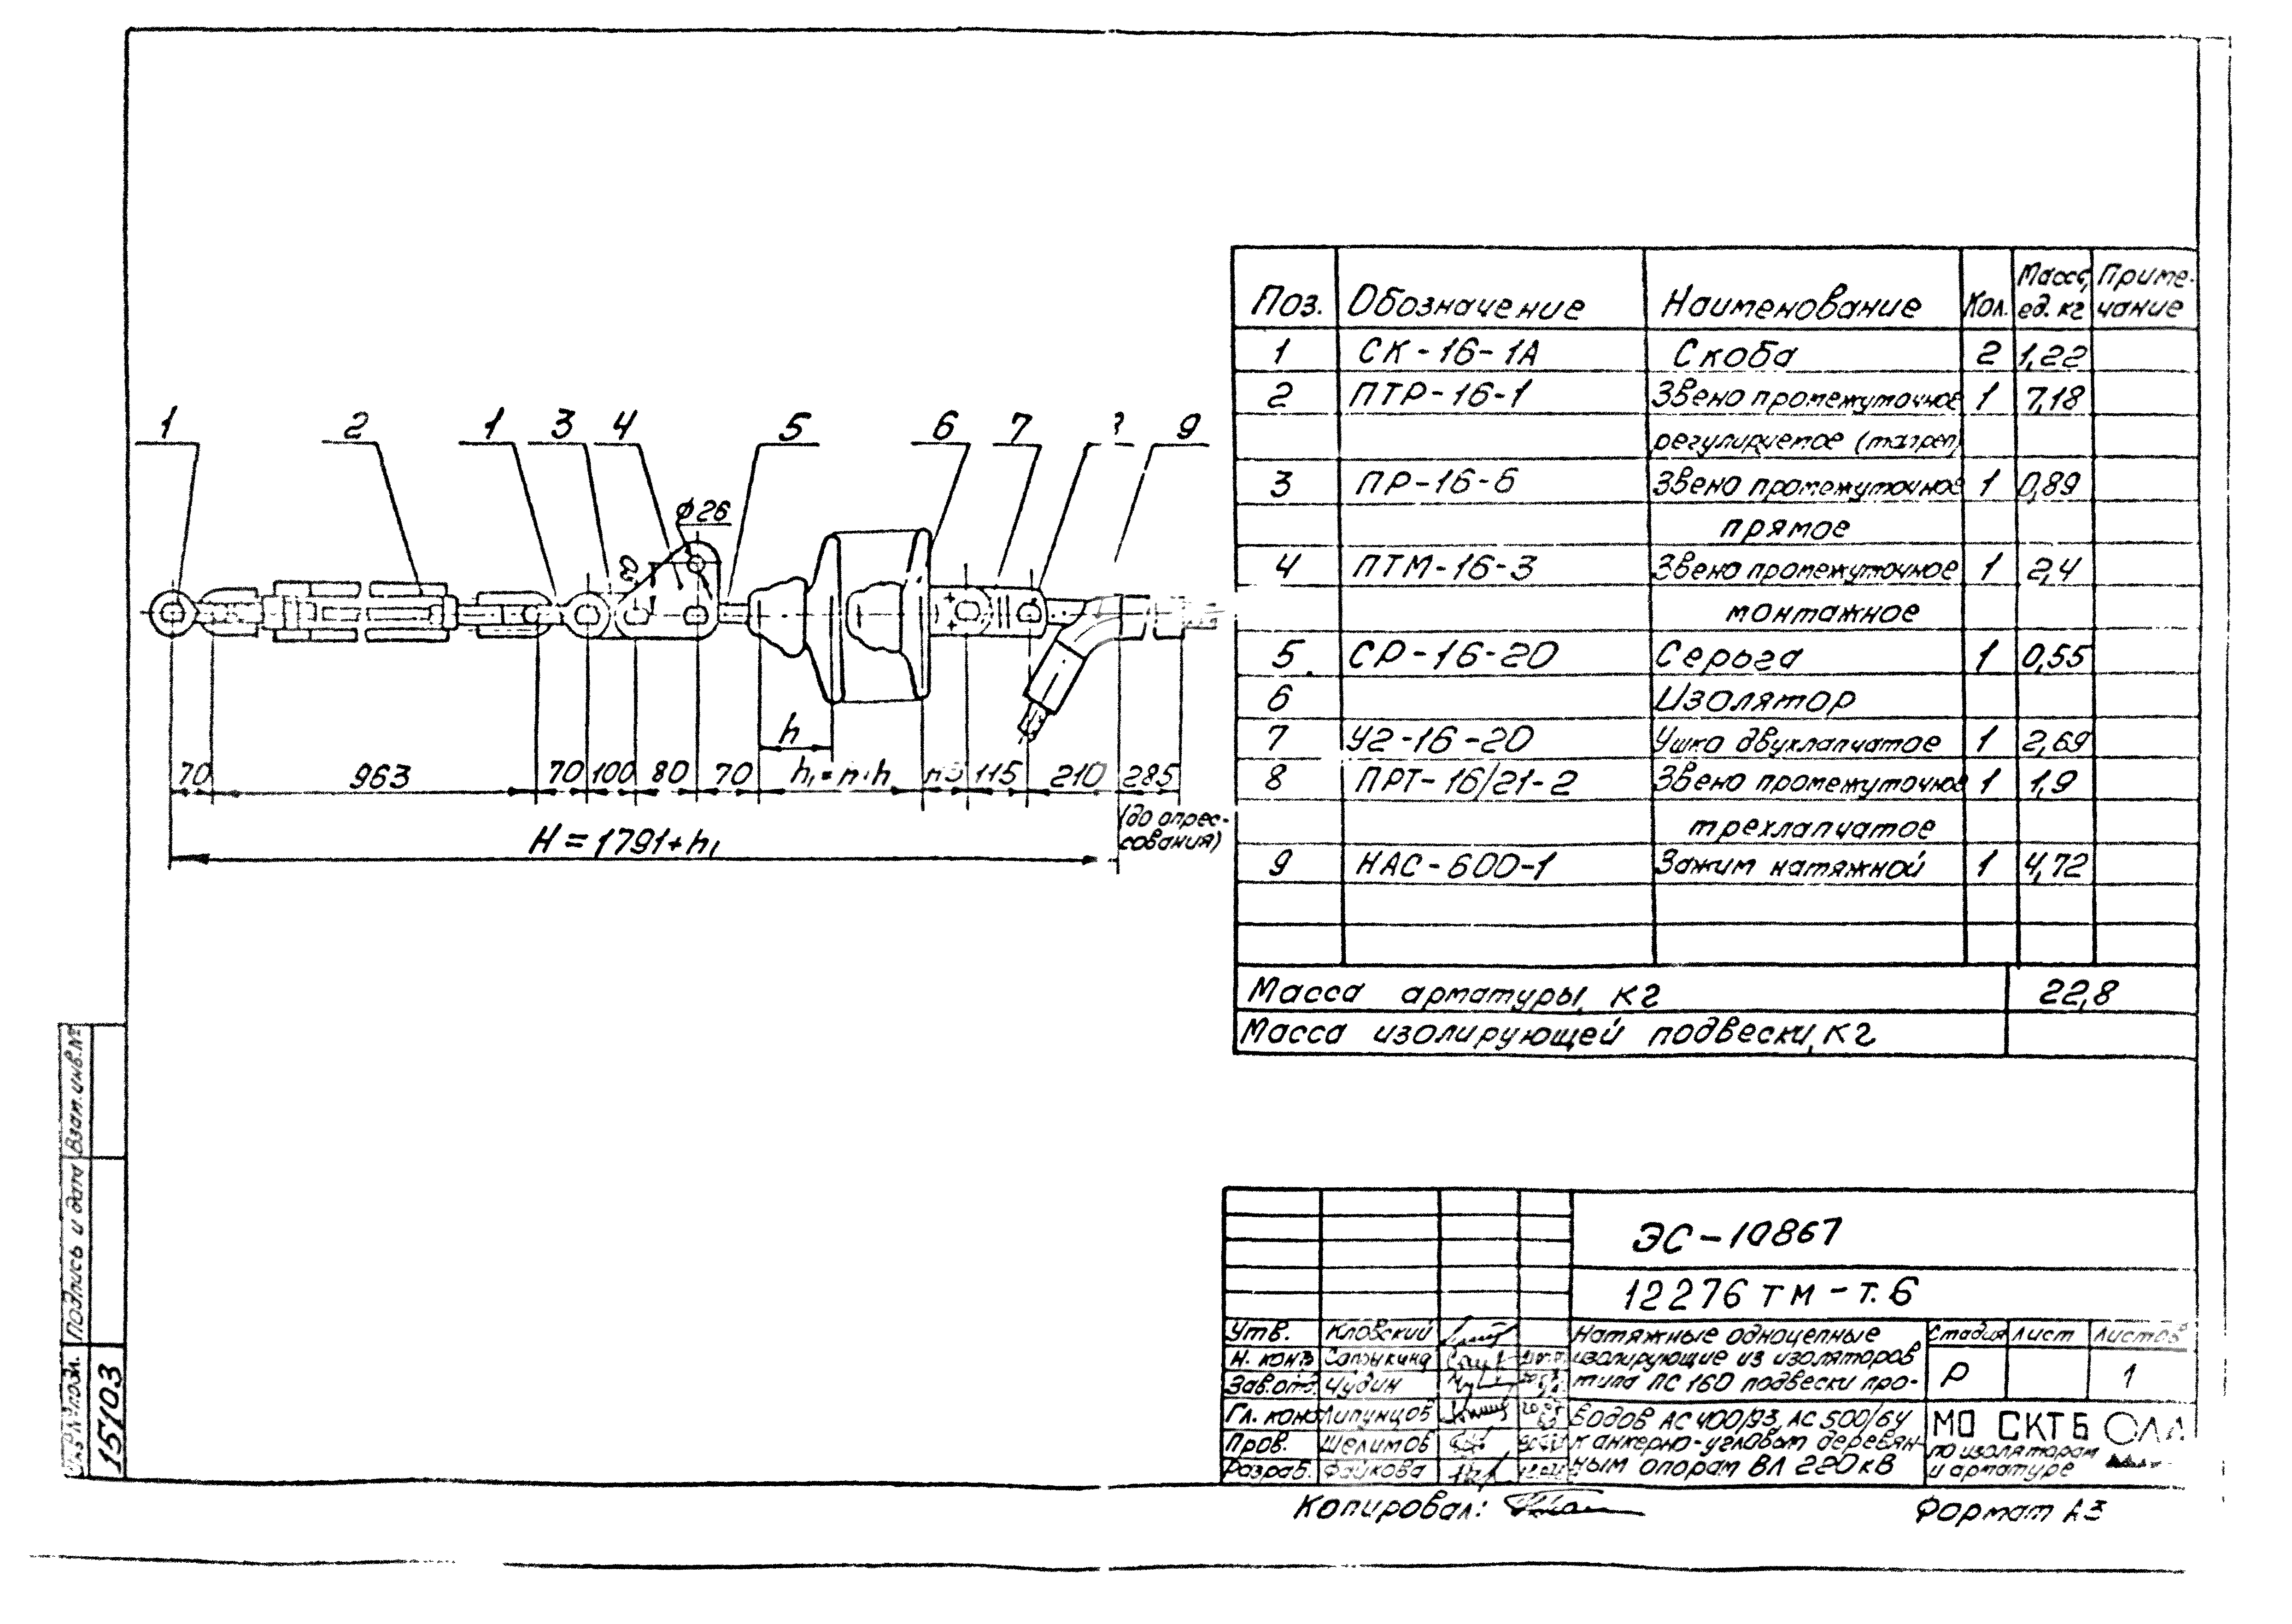 1 2 1 3 4 5 6 7 9
ϕ26
h
70 963 70 100 80 70 h₁=n·h 115 210 285
(до опрес-
сования)
H=1791+h₁
Поз. Обозначение Наименование Кол. Масса, ед. кг Приме-чание
1 СК-16-1А Скоба 2 1,22
2 ПТР-16-1 Звено промежуточное 1 7,18
регулируемое (талреп)
3 ПР-16-6 Звено промежуточное 1 0,89
прямое
4 ПТМ-16-3 Звено промежуточное 1 2,4
монтажное
5 СР-16-20 Серьга 1 0,55
6 Изолятор
7 У2-16-20 Ушко двухлапчатое 1 2,69
8 ПРТ-16/21-2 Звено промежуточное 1 1,9
трехлапчатое
9 НАС-600-1 Зажим натяжной 1 4,72
Масса арматуры, кг 22,8
Масса изолирующей подвески, кг
Взам.инв.№
Подпись и дата
15103
ЭС-10867
12276 ТМ-Т.6
Утв. Кловский
Н. конт Сапыкина
Зав.отд. Чудин
Гл. конс Липунцов
Пров. Шелимов
Разраб. Файкова
Натяжные одноцепные
изолирующие из изоляторов
типа ПС 160 подвески про-
водов АС 400/93, АС 500/64
к анкерно-угловым деревян-
ным опорам ВЛ 220кВ
Стадия Лист Листов
Р 1
МО СКТБ
по изоляторам
и арматуре
Копировал:
Формат А3